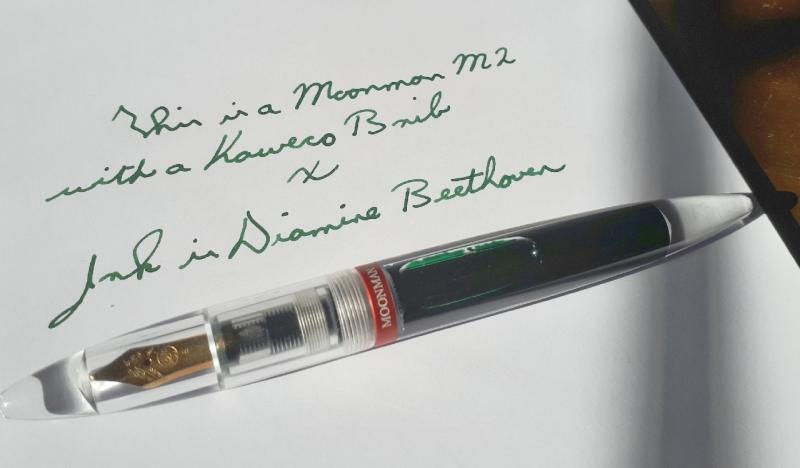 This is a Moonman M2
with a Kaweco B nib
x
Ink is Diamine Beethoven
MOONMAN